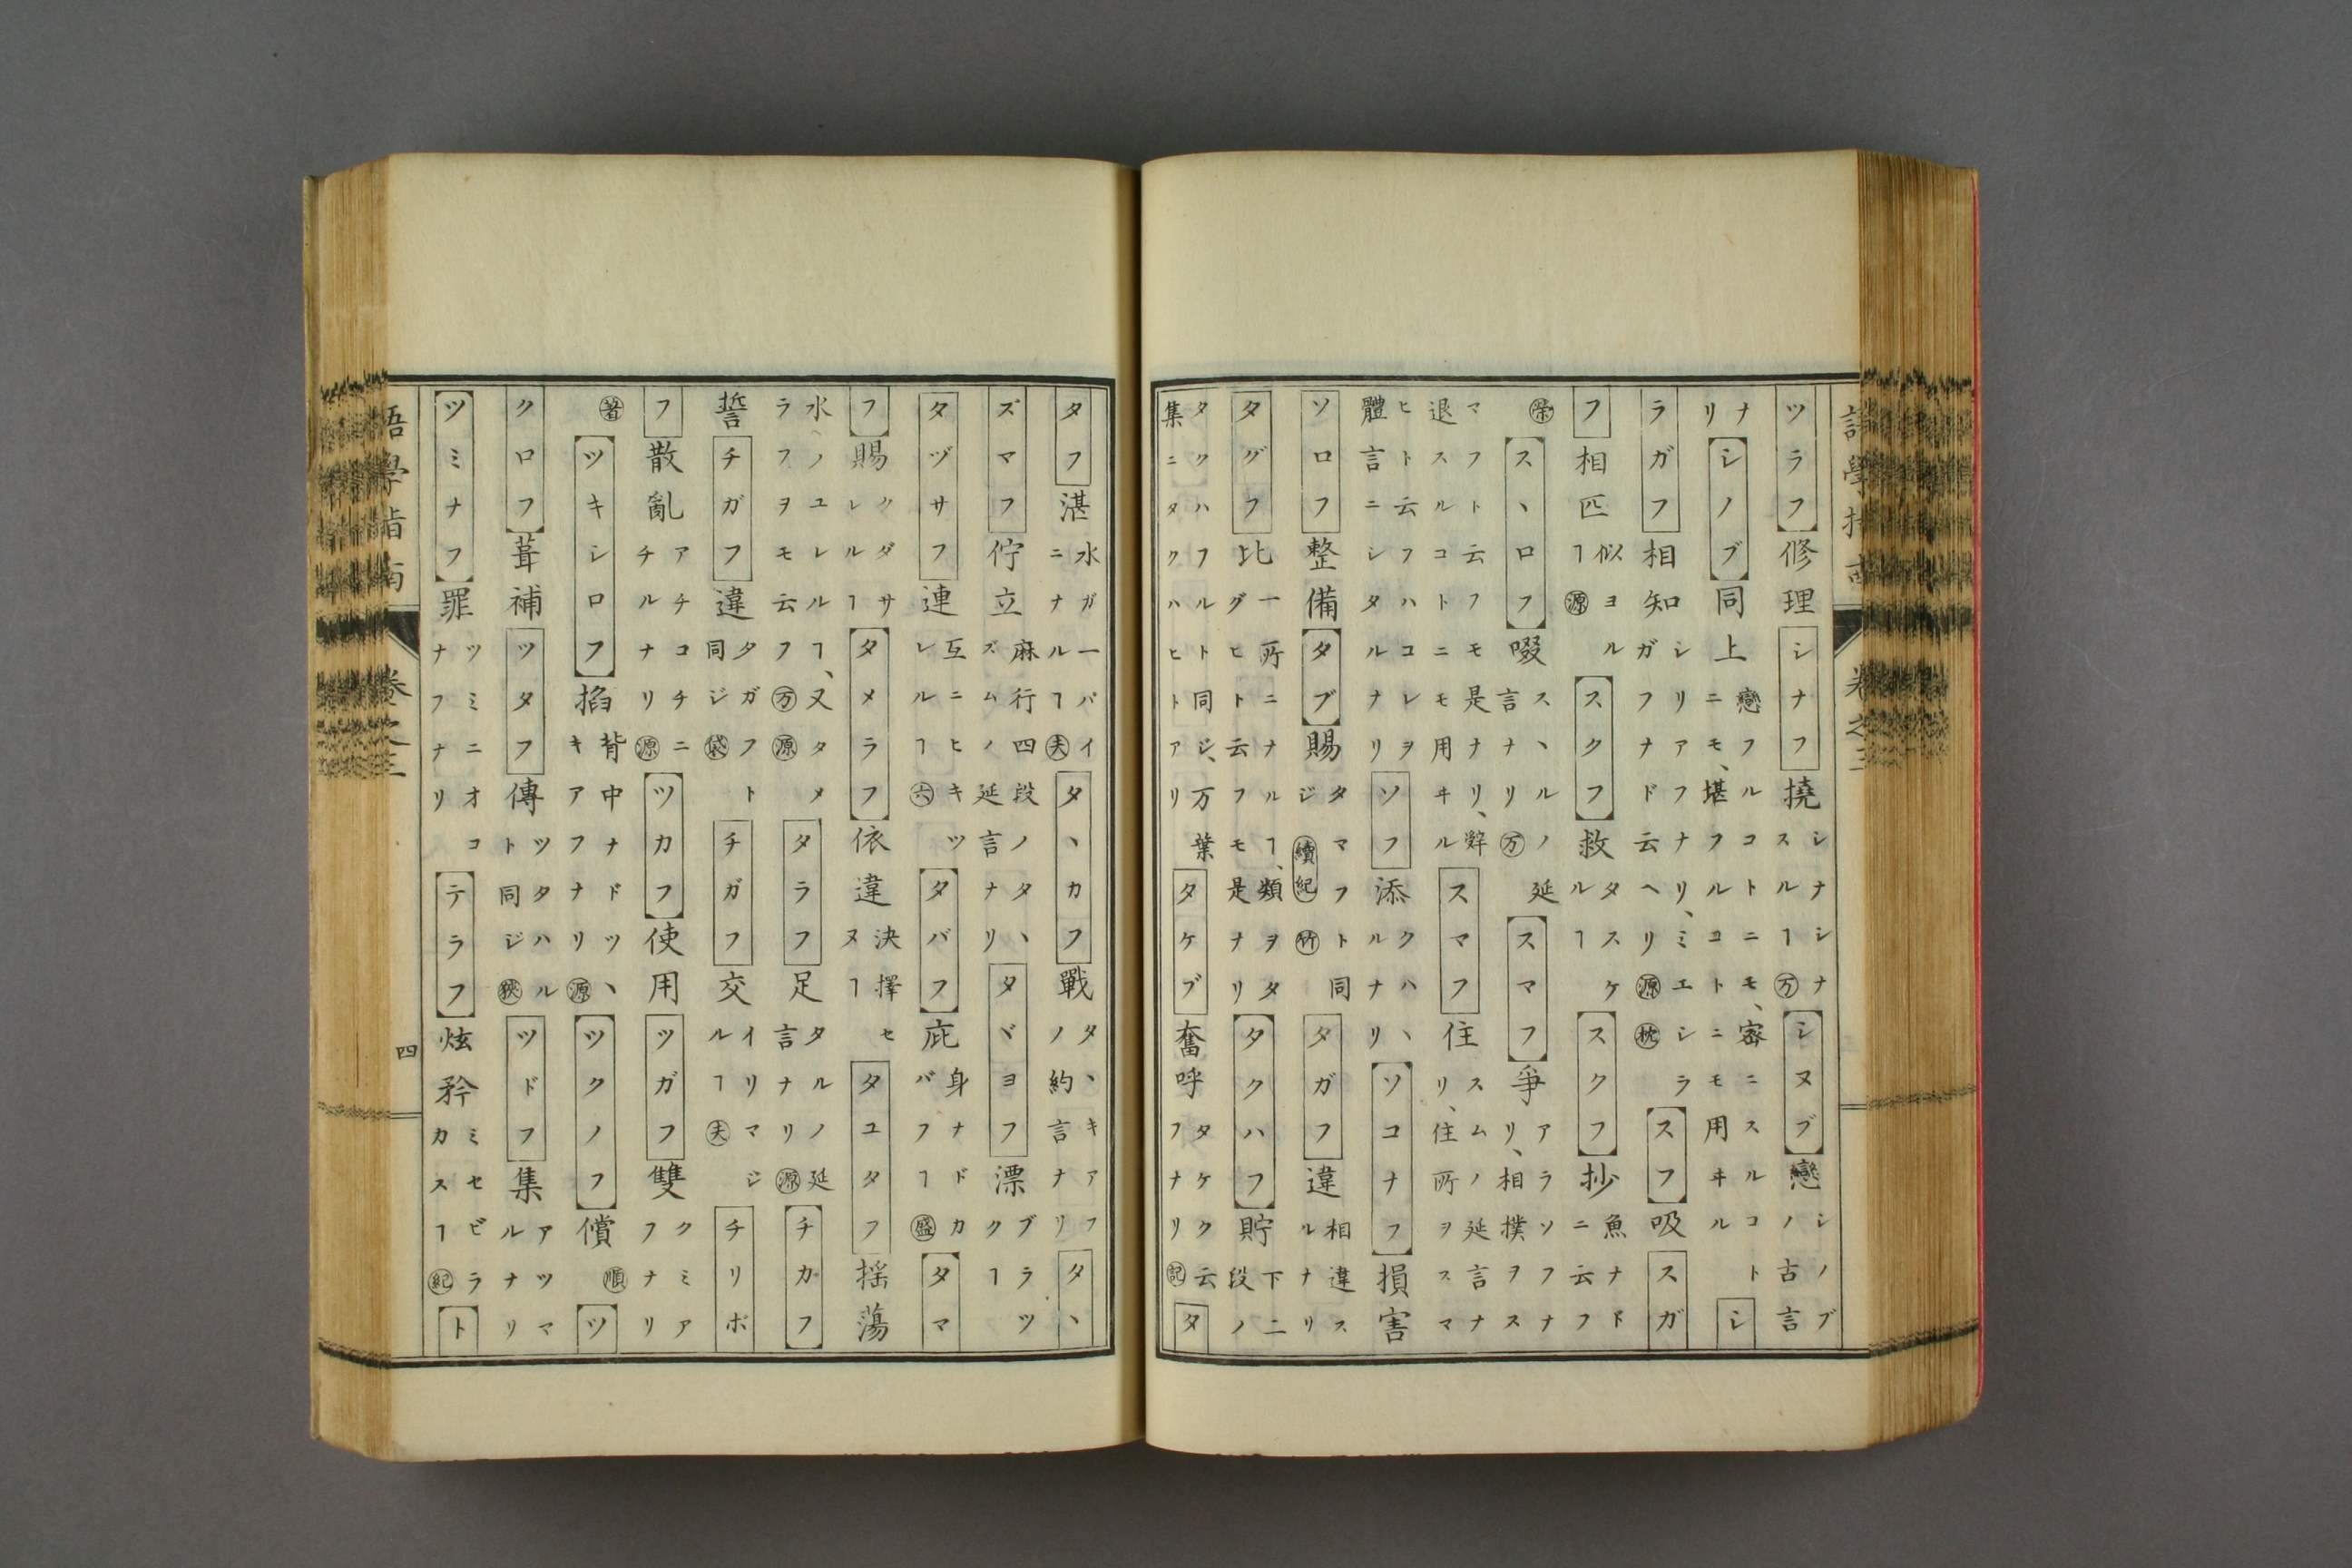 ツラフ 修理 シナフ 撓 シナシナスルヿ 万 シヌブ 戀 シノブノ古言
ナリ シノブ 同上 戀フルコトニモ、密ニスルコトニモ、堪フルコトニモ用ヰル シ
ラガフ 相知 シリアフナリ、ミエシラガフナド云ヘリ 源 枕 スフ 吸 スガ
フ 相匹 似ヨルヿ 源 スクフ 救 タスケルヿ スクフ 抄 魚ナドニ云フ
榮 スヽロフ 啜 スヽルノ延言ナリ 万 スマフ 爭 アラソフナリ、相撲ヲス
マフト云フモ是ナリ、辭退スルコトニモ用ヰル スマフ 住 スムノ延言ナリ、住所ヲスマ
ヒト云フハコレヲ體言ニシタルナリ ソフ 添 クハヽルナリ ソコナフ 損害
ソロフ 整備 タブ 賜 タマフト同ジ 續紀 竹 タガフ 違 相違スルナリ
タグフ 比 一所ニナルヿ、類ヲタグヒト云フモ是ナリ タクハフ 貯 下二段ノ
タクハフルト同ジ、万葉集ニタクハヒトアリ タケブ 奮呼 タケクナリ云フ 記 タ
タフ 湛 水ガ一パイニナルヿ 夫 タヽカフ 戰 タヽキアフノ約言ナリ タヽ
ズマフ 佇立 麻行四段ノタヽズムノ延言ナリ タヾヨフ 漂 ブラツクヿ
タヅサフ 連 互ニヒキツレルヿ 六 タバフ 庇 身ナドカバフヿ 盛 タマ
フ 賜 クダサレルヿ タメラフ 依違 決擇セヌヿ タユタフ 揺蕩
水ノユレルヿ、又タメラフヲモ云フ 万 源 タラフ 足 タルノ延言ナリ 源 チカフ
誓 チガフ 違 タガフト同ジ 袋 チガフ 交 イリマジルヿ 夫 チリボ
フ 散亂 アチコチニチルナリ 源 ツカフ 使用 ツガフ 雙 クミアフナリ
著 ツキシロフ 掐 背中ナドツヽキアフナリ 源 ツクノフ 償 順 ツ
クロフ 葺補 ツタフ 傳 ツタハルト同ジ 狹 ツドフ 集 アツマルナリ
ツミナフ 罪 ツミニオコナフナリ テラフ 炫矜 ミセビラカスヿ 紀 ト
語學指南 卷之三 四